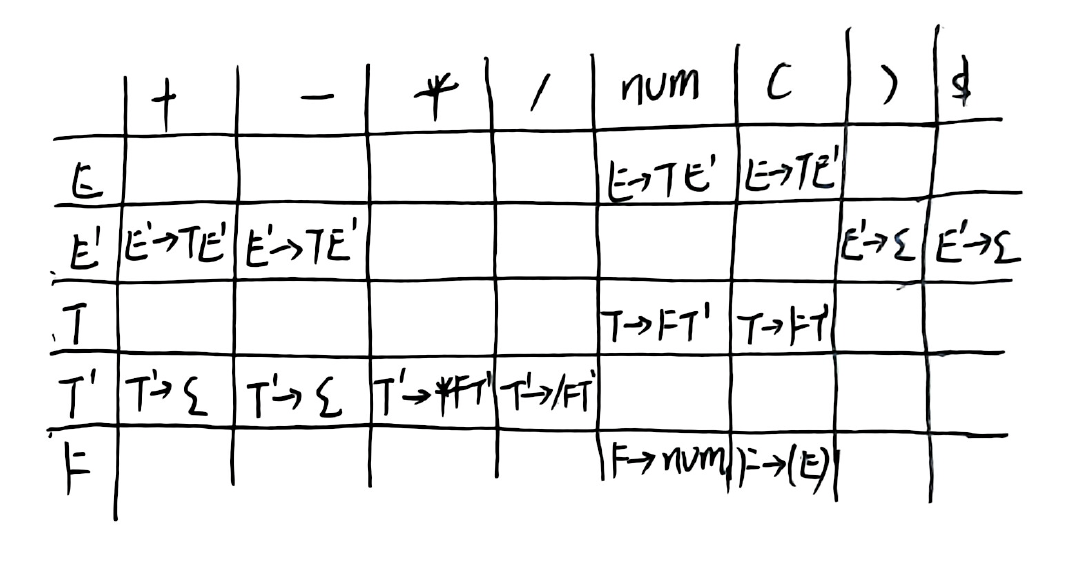 + - * / num ( ) $
E E→TE' E→TE'
E' E'→TE' E'→TE' E'→ε E'→ε
T T→FT' T→FT'
T' T'→ε T'→ε T'→*FT' T'→/FT'
F F→num F→(E)